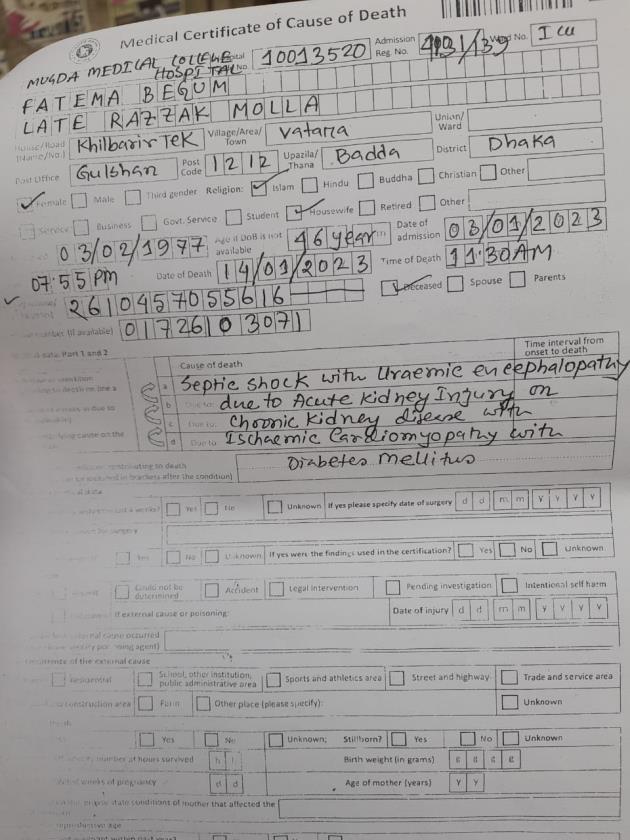 Medical Certificate of Cause of Death
MUGDA MEDICAL COLLEGE HOSPITAL No. 10013520 Admission Reg. No. Ward No. ICU
FATEMA BEGUM
LATE RAZZAK MOLLA
House/Road (Name/No.) Khilbarir Tek Village/Area/Town Vatara Union/Ward
Post Office Gulshan Post Code 1212 Upazila/Thana Badda District Dhaka
Female Male Third gender Religion: Islam Hindu Buddha Christian Other
Service Business Govt. Service Student Housewife Retired Other
03/02/1977 Age if DOB is not available 46 year Date of admission 03/01/2023
07:55 PM Date of Death 14/01/2023 Time of Death 11:30AM
2610457055616 Deceased Spouse Parents
number (if available) 01726103071
Part 1 and 2
Cause of death Time interval from onset to death
a Septic shock with Uraemic encephalopathy
b Due to: due to Acute Kidney Injury on
c Due to: Chronic Kidney disease with
d Due to: Ischaemic Cardiomyopathy with
contributing to death Diabetes Mellitus
in brackets after the condition)
Yes No Unknown If yes please specify date of surgery d d m m y y y y
Yes No Unknown If yes were the findings used in the certification? Yes No Unknown
Could not be determined Accident Legal intervention Pending investigation Intentional self harm
If external cause or poisoning: Date of injury d d m m y y y y
external cause occurred
of the external cause
Residential School, other institution, public administrative area Sports and athletics area Street and highway Trade and service area
construction area Farm Other place (please specify): Unknown
Yes No Unknown; Stillborn? Yes No Unknown
number of hours survived h Birth weight (in grams) g g g g
weeks of pregnancy d d Age of mother (years) y y
state conditions of mother that affected the